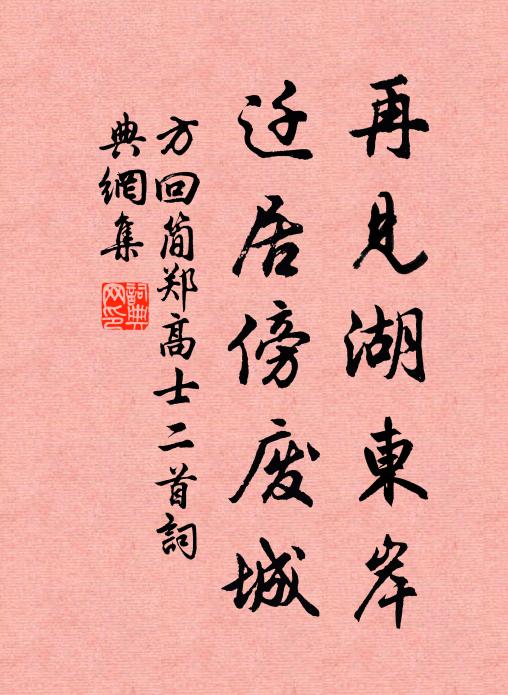 再見湖東岸
迁居傍废城
方回简郑高士二首詞
典網集
詞典網印